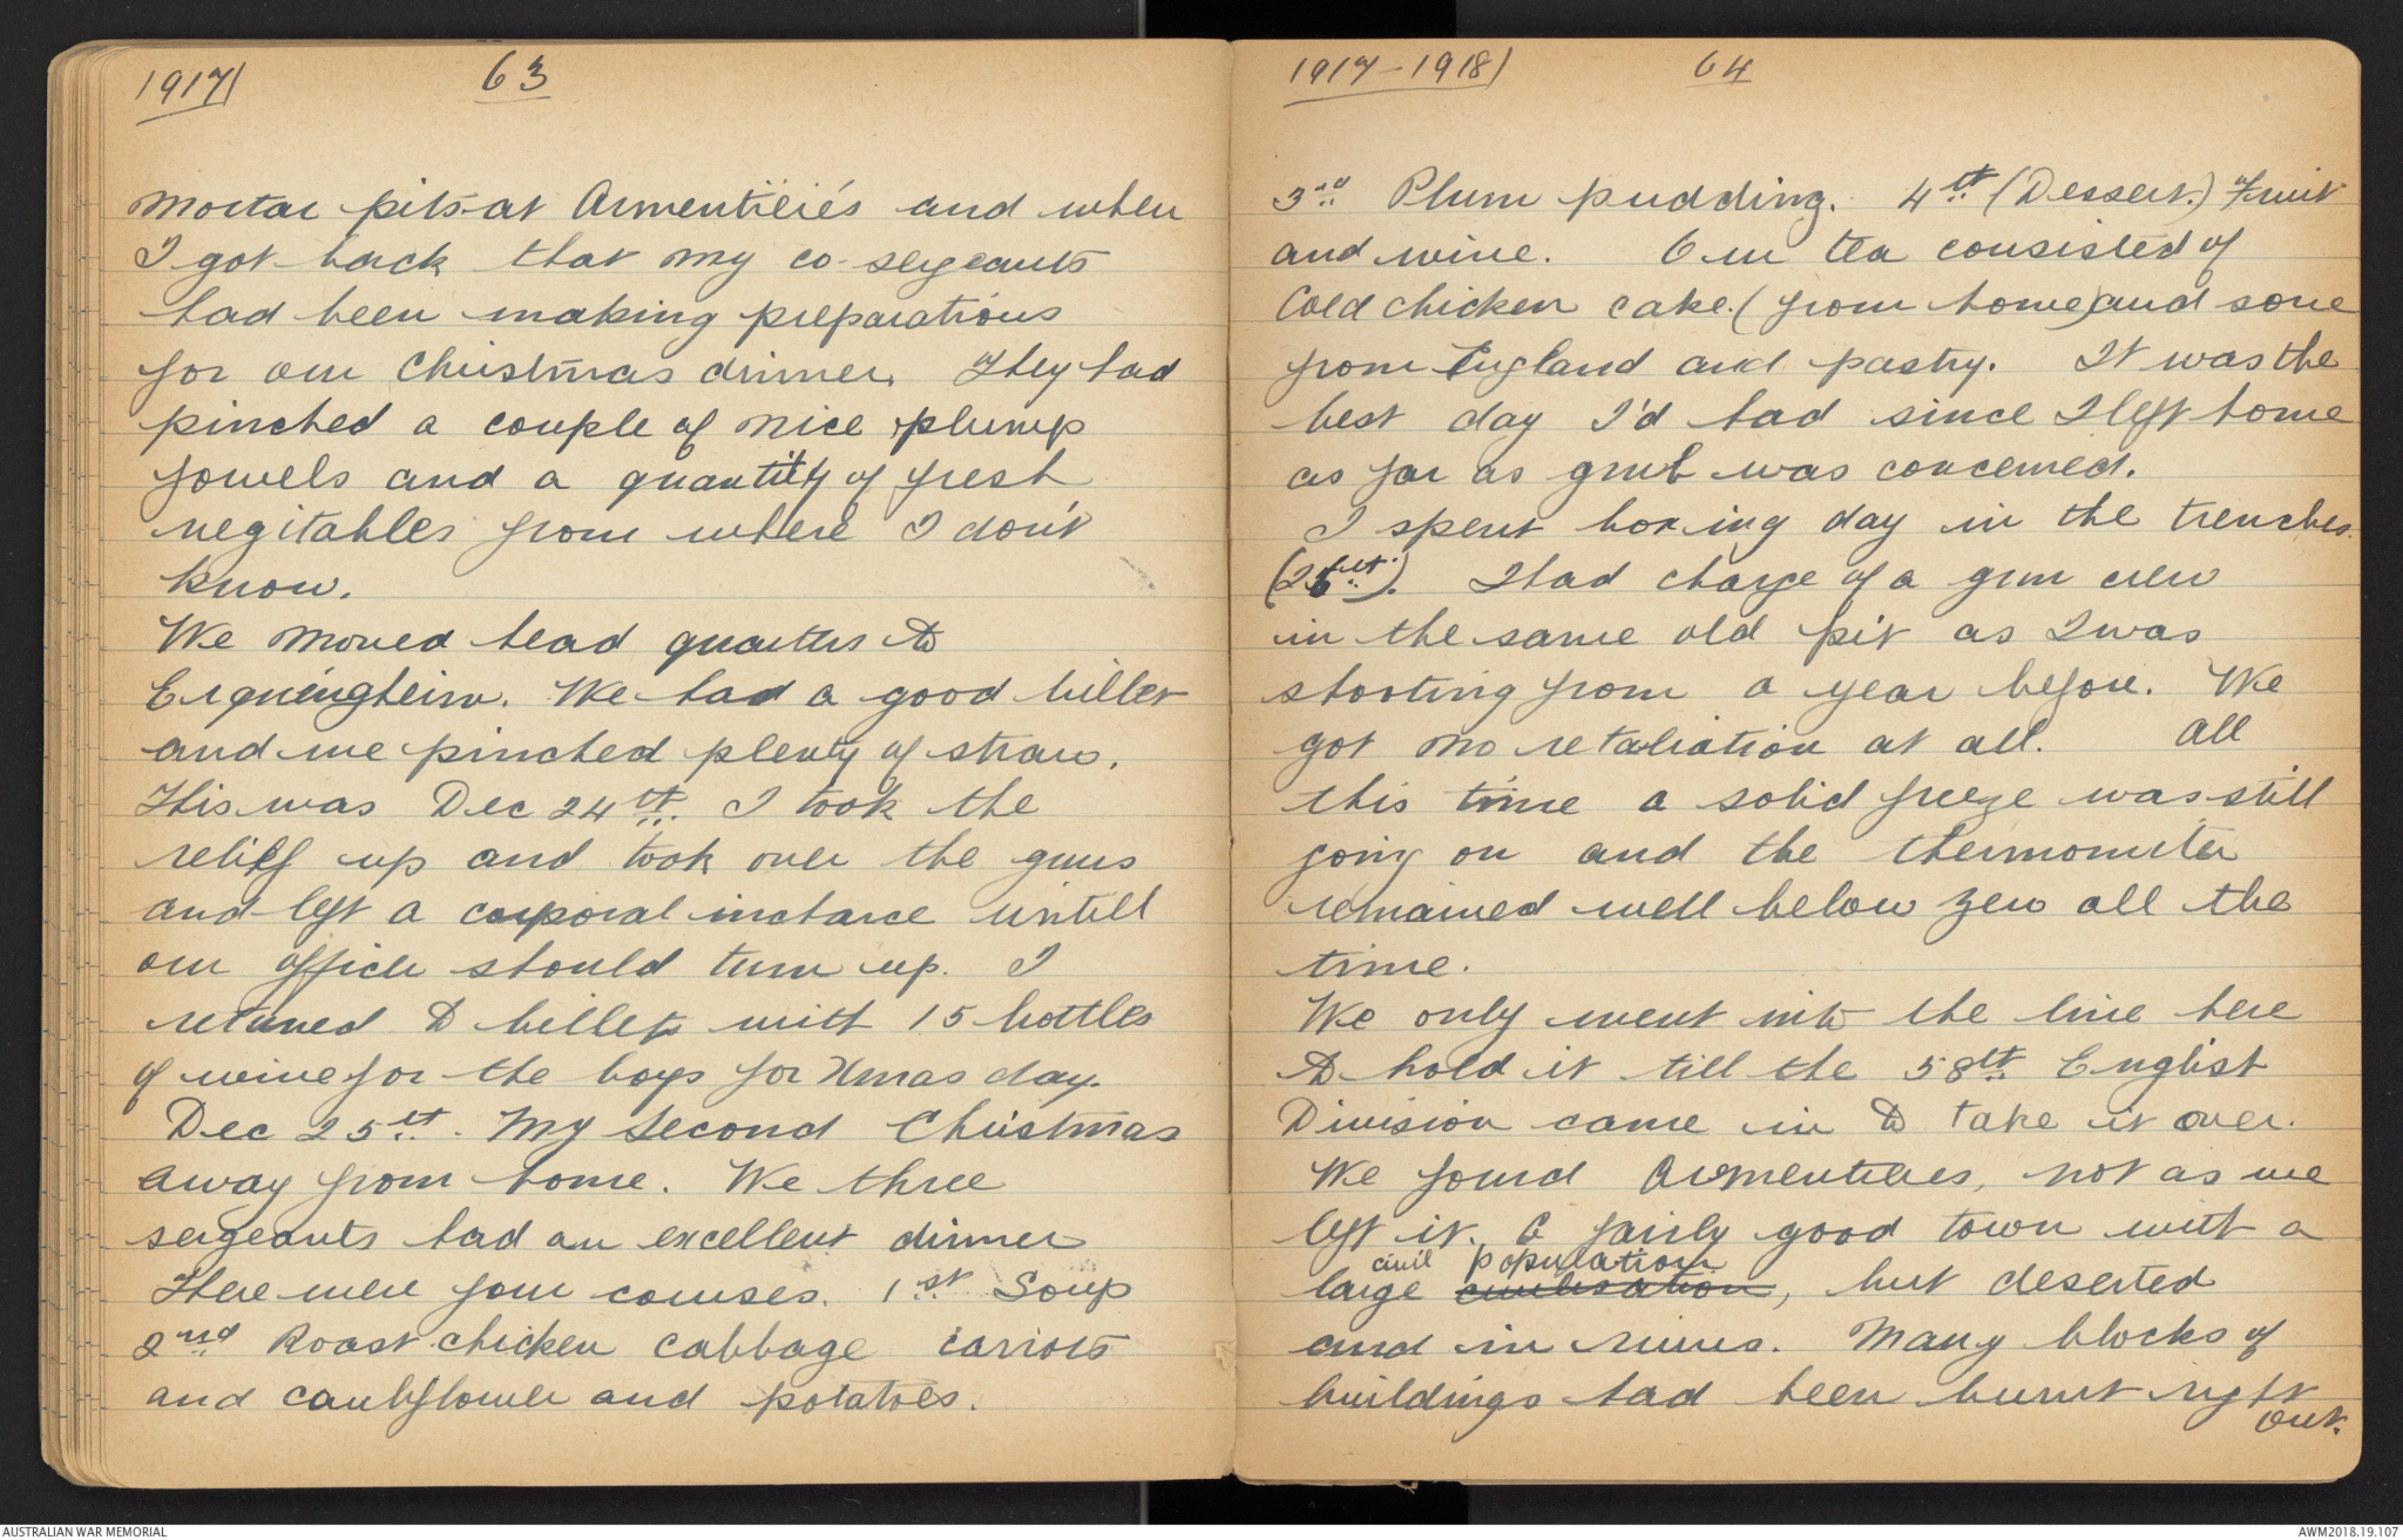 1917)
63
mortar pits at Armentiéres and when
I got back that my co-sergeants
had been making preparations
for our Christmas dinner. They had
pinched a couple of nice plump
fowels and a quantity of fresh
vegitables from where I don't
know.
We moved head quarters to
Erquingheim. We had a good billet
and we pinched plenty of straw.
This was Dec 24th. I took the
relief up and took over the guns
and left a corporal incharge untill
our officer should turn up. I
returned to billets with 15 bottles
of wine for the boys for Xmas day.
Dec 25th. My second Christmas
away from home. We three
sergeants had an excellent dinner
There were four courses. 1st Soup
2nd Roast chicken cabbage carrots
and cauliflower and potatoes.
1917-1918)
64
3rd Plum pudding. 4th (Dessert.) Fruit
and wine. Our tea consisted of
Cold chicken cake. (from home) and some
from England and pastry. It was the
best day I'd had since I left home
as far as grub was concerned.
I spent boxing day in the trenches.
(26th). I had charge of a gun crew
in the same old pit as I was
shooting from a year before. We
got no retaliation at all. All
this time a solid freeze was still
going on and the thermometer
remained well below zero all the
time.
We only went into the line here
to hold it till the 58th English
Division came in to take it over.
We found Armentieres, not as we
left it. A fairly good town with a
civil population
large civilisation, but deserted
and in ruins. Many blocks of
buildings had been burnt right
out.
AUSTRALIAN WAR MEMORIAL
AWM2018.19.107